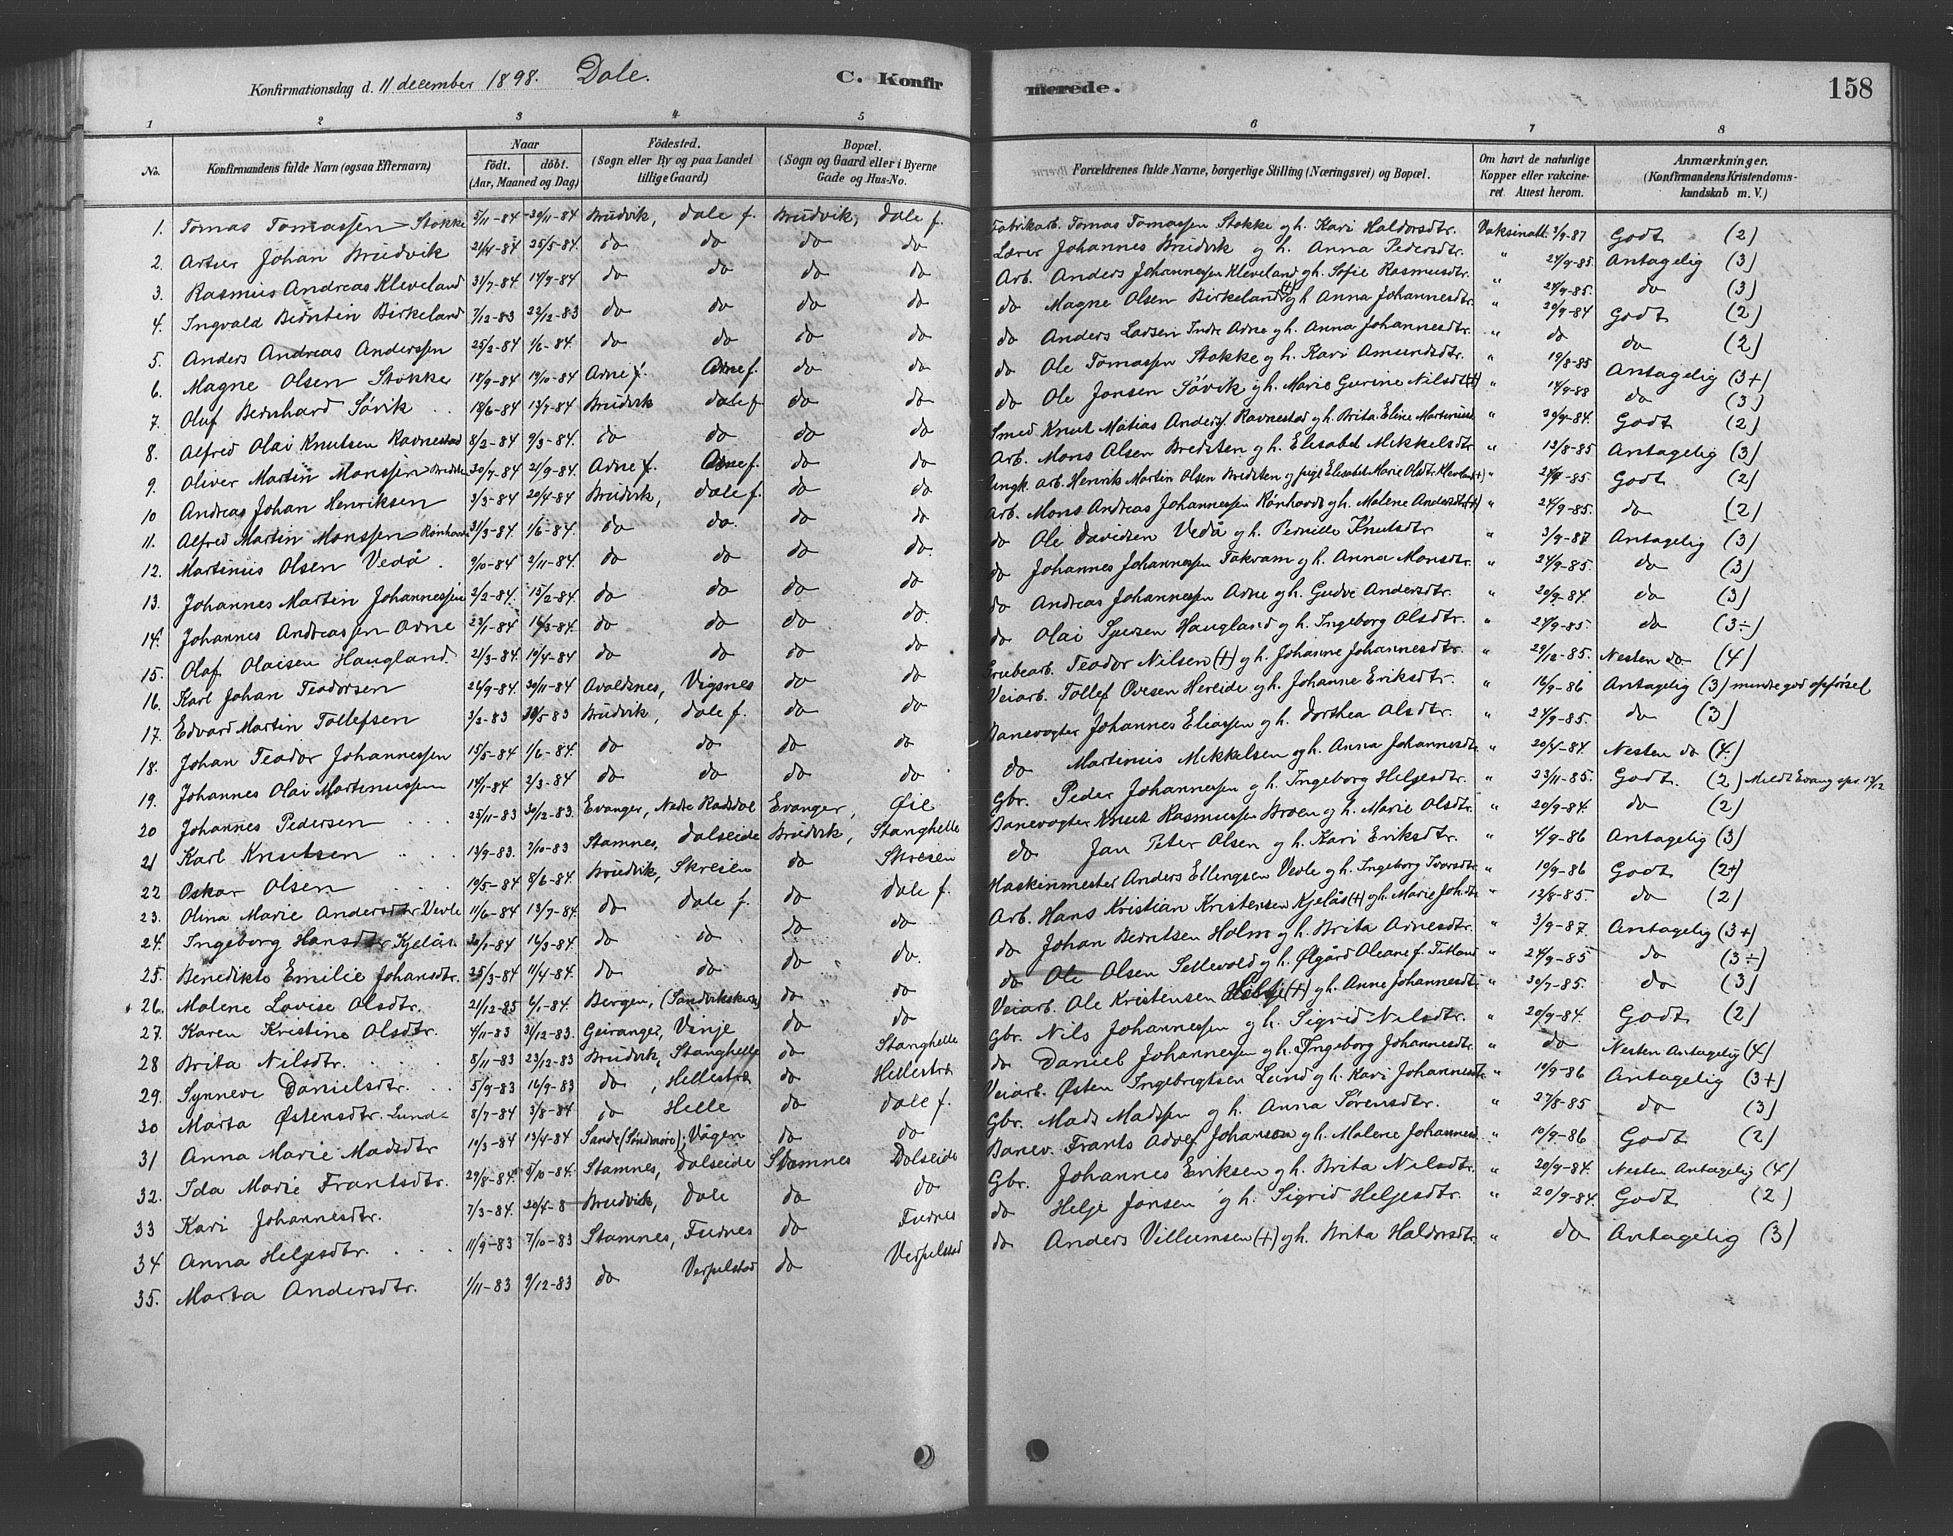 Konfirmationsdag d. 11 december 1898. Dale. C. Konfirmerede. 158
1 2 3 4 5 6 7 8
No. Konfirmandens fulde Navn (ogsaa Efternavn) Naar født. døbt. (Aar, Maaned og Dag) Fødested. (Sogn eller By og paa Landet tillige Gaard) Bopæl. (Sogn og Gaard eller i Byerne Gade og Hus-No. Forældrenes fulde Navne, borgerlige Stilling (Næringsvei) og Bopæl. Om havt de naturlige Kopper eller vakcineret. Attest herom. Anmærkninger. (Konfirmandens Kristendomskundskab m. V.)
1. Tomas Tomassen Stokke 5/11-84 30/11-84 Brudvik, Dale f. Brudvik, Dale f. Fabrikarb. Tomas Tomassen Stokke og h. Kari Haldorsdtr. Vaksinatt. 3/9-87 Godt (2)
2. Artur Johan Brudvik 21/4-84 25/5-84 do do do do Lærer Johannes Brudvik og h. Anna Pedersdtr. " 24/9-85. Antagelig (3)
3. Rasmus Andreas Kleveland 31/7-84 14/9-84 do do do do Arb. Anders Johannessen Kleveland og h. Sofie Rasmusdtr. " 24/9-85. do (3)
4. Ingvald Berntin Birkeland 7/12-83 22/12-83 do do do do do Magne Olsen Birkeland (+) og h Anna Johannesdtr. " 20/9-84 Godt (2)
5. Anders Andreas Anderssen 25/2-84 1/6-84. do do do do do Anders Larsen Indre Arne og h. Anna Johannesdtr. " do do (2)
6. Magne Olsen Stokke 18/9-84 19/10-84 Arne f. Arne f. do do do Ole Tomassen Stokke og h. Kari Amundsdtr. " 19/8-85 Antagelig (3+)
7. Oluf Bernhard Søvik 18/6-84 13/7-84 Brudvik Dale f. do do do Ole Jonsen Søvik og h. Marie Gurine Nilsdt(+) " 14/9-88 do (3)
8. Alfred Olai Knutsen Ravnestad 8/2-84 9/3-84. do do do do Smed Knut Matias Anders. Ravnestad og h. Brita Eline Martinusd " 20/9-84. Godt (2)
9. Oliver Martin Monssen Bredsten 30/7-84 21/9-84 Arne f. Arne f. do do Arb. Mons Olsen Bredsten og h. Elisabet Mikkelsdtr " 12/8-85 Antagelig (3)
10 Andreas Johan Henriksen 3/3-84 20/4-84 Brudvik, Dale f. do do Ungk. arb. Henrik Martin Olsen Bredsten og pige Elisabet Marie Olsdtr. " 24/9-85 Godt (2)
11. Alfred Martin Monssen Rønhovde 31/3-84. 1/6-84. do do. do do Arb. Mons Andreas Johannessen Rønhovde og h. Malene Andersdt(+) " 24/9-85. do (2)
12. Martinius Olsen Vedå 9/10-84 2/11-84 do do do do. do Ole Davidsen Vedå og h. Pernille Knutsdtr " 3/9-87 Antagelig (3)
13. Johannes Martin Johannessen 2/2-84. 15/2-84. do do do do do Johannes Johannessen Takvam og h. Anna Monsdtr. " 24/9-85. do (3)
14. Johannes Andreassen Arne 23/1-84 16/3-84. do do do do. do Andreas Johannessen Arne og h. Gudve Andersdtr. " 20/9-84. do (3)
15. Olaf Olaisen Haugland. 21/3-84. 10/4-84 do do do do do Olai Haugland og h. Ingeborg Olsdtr. " 24/9-85. do (3÷)
16. Karl Johan Teodorsen 26/9-84 30/11-84 Avaldsnes, Vigsnes do do Grubearb. Teodor Nilsen (+) og h. Johanne Johannesdtr. " 29/12-85. Nesten do (4)
17. Edvard Martin Tollefsen 3/2-83 /5-83 Brudvik, Dale f. do do Veiarb. Tollef Ovesen Hereide og h. Johanne Eriksdtr. " 16/9-86 Antagelig (3) mindre god opførsel
18. Johan Teodor Johannessen 15/5-84. 1/6-84. do do do do Banevogter Johannes Eliassen og h. Dorthea Olsdtr. " 24/9-85. do (3)
19. Johannes Olai Martinussen 14/1-84 2/3-84 do do do do do Martinius Mikkelsen og h. Anna Johannesdtr " 20/9-84 Nesten do (4.)
20 Johannes Pedersen 25/11-83 30/12-83. Evanger, Nedre Evanger, Øie Gbr. Peder Johannessen og h. Ingeborg Helgesdtr. " 23/11-85. Godt. (2) Meldt Evang. spr. 12/12
21 Karl Knutsen 13/9-83. 7/10-83 Stamnes, Dalseide Brudvik, Stanghelle Banevogter Knut Rasmussen Broen og h. Marie Olsdtr. " 20/9-84. do (2)
22 Oskar Olsen 19/5-84 8/6-84. Brudvik, Skreien do Skreien do Jan Peter Olsen og h. Kari Eriksdtr. " 4/9-86 Antagelig (3)
23. Olina Marie Andersdtr Vevle 11/6-84 13/7-84. do Dale f. do Dale f. Maskinmester Anders Ellingsen Vevle og h. Ingeborg Ivarsdtr " 10/9-86 Godt (2+)
24. Ingeborg Hansdtr Kjelås 20/1-84 16/3-84. do do do do Arb. Hans Kristian Kristensen Kjelås (+) og h. Marie Joh.dt " 12/8-85. do (2)
25. Benedikte Emilie Johansdtr. 25/3-84 11/4-84. do do do do. do Johan Berntsen Holm og h. Brita Arnesdtr. " 3/9-87. Antagelig (3+)
26. Malene Lovise Olsdtr. 21/12-85 6/1-84. Bergen, (Sandvikskirken) do " do do Ole Olsen Sellevold og h. Ølgård Oleane f. Titland " 24/9-85 do (3÷)
27. Karen Kristine Olsdtr. 4/11-83 31/12-83. Geiranger, Vinje do do Veiarb. Ole Kristensen (+) og h. Anne Johannesdt " 30/7-85. do (3)
28 Brita Nilsdtr. 8/11-83 23/12-83 Brudvik, Stanghelle do Stanghelle Gbr. Nils Johannessen og h. Sigrid Nilsdtr. " 20/9-84. Godt (2)
29. Synneve Danielsdtr. 5/9-83 16/9-83 do, Hellestræ do Hellestræ do Daniel Johannessen og h. Ingeborg Johannesdtr. " do Nesten Antagelig (4)
30 Marta Østensdtr. Lunde 8/7-84 3/8-84 do Helle do Dale f. Veiarb. Østen Ingebrigtsen Lund og h. Kari Johannesdtr " 14/9-86 Antagelig (3+)
31 Anna Marie Madsdtr 10/3-84 13/4-84 Sande (Søndmøre); Vågen do do Gbr. Mads Madssen og h. Anna Sørensdtr. " 27/8-85 do (3)
32. Ida Marie Frantsdtr. 29/8-84. 5/10-84. Stamnes, Dalseide Stamnes Dalseide Banev. Frants Adolf Johanson og h. Malene Johannesd. " 10/9-86. Godt (2)
33 Kari Johannesdtr. 7/3-84. 20/4-8 Brudvik, Dale do do Gbr. Johannes Eriksen og h. Brita Nilsdtr. " 20/9-84. Nesten Antagelig (4)
34 Anna Helgesdtr. 11/9-83 7/10-83 Stamnes, Furnes do Furnes do Helje Jonsen og h. Sigrid Helgesdtr. " 20/9-84. Godt (2)
35. Marta Andersdtr. 1/11-83 9/12-83 do Verpelstad do Verpelstad do Anders Villumsen (+) og h. Brita Haldorsdtr. " do Antagelig (3)